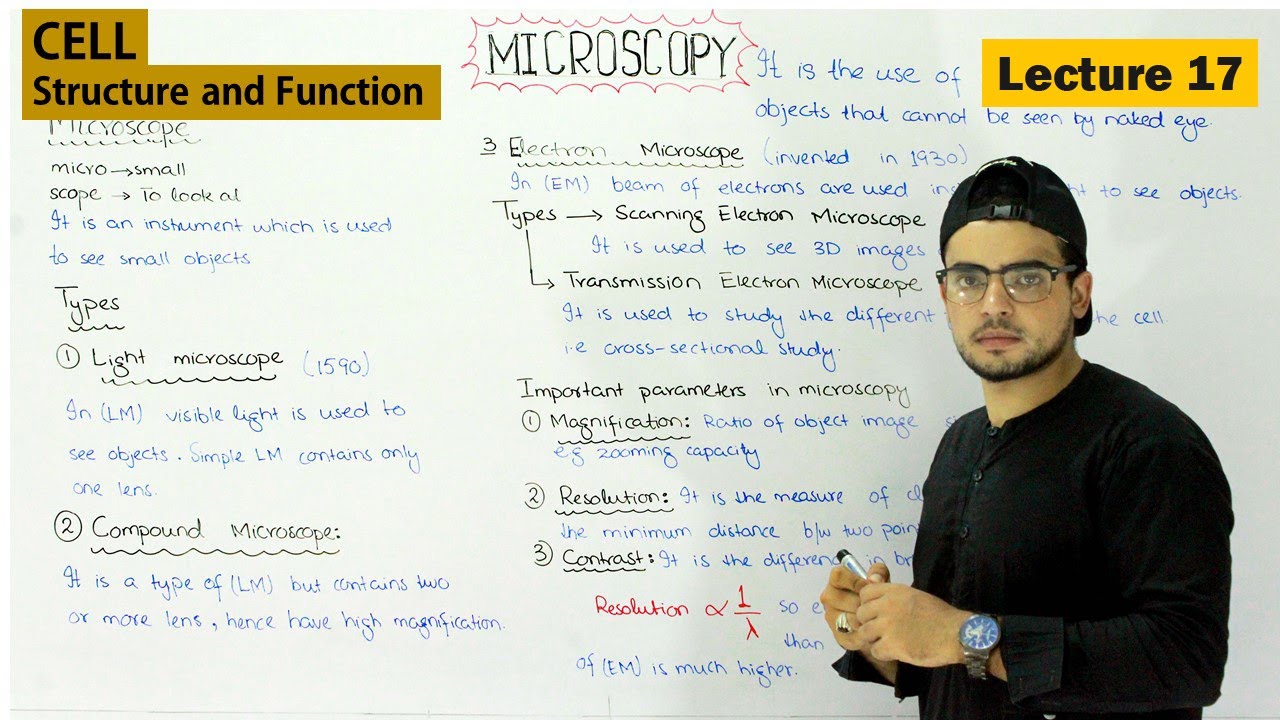 CELL
Structure and Function
Lecture 17
MICROSCOPY
It is the use of
objects that cannot be seen by naked eye.
Microscope
micro → small
scope → To look at
It is an instrument which is used
to see small objects
Types
① Light microscope (1590)
In (LM) visible light is used to
see objects. Simple LM contains only
one lens.
② Compound Microscope:
It is a type of (LM) but contains two
or more lens, hence have high magnification.
3 Electron Microscope (invented in 1930)
In (EM) beam of electrons are used to see objects.
Types → Scanning Electron Microscope
It is used to see 3D images
→ Transmission Electron Microscope
It is used to study the different the cell.
i.e cross-sectional study.
Important parameters in microscopy
① Magnification: Ratio of object image
e.g zooming capacity
② Resolution: It is the measure of
the minimum distance b/w two
③ Contrast: It is the difference in
Resolution ∝ 1/λ so
than
of (EM) is much higher.